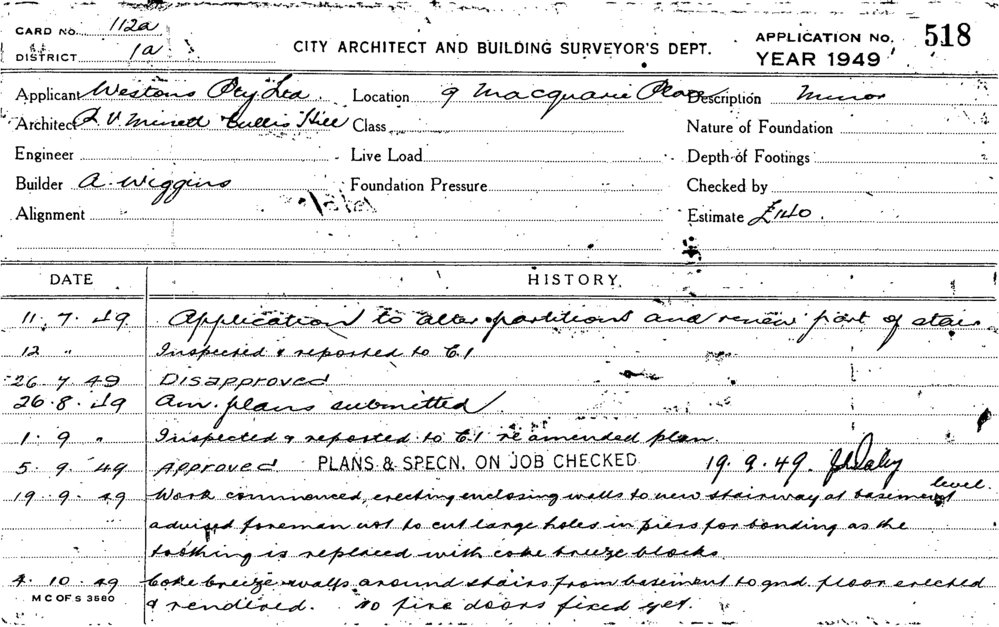 CARD NO. 112a
DISTRICT 1a
CITY ARCHITECT AND BUILDING SURVEYOR'S DEPT.
APPLICATION NO. 518
YEAR 1949
Applicant Westons Pty Ltd. Location 9 Macquarie Place Description Minor
Architect Cullis Hill Class Nature of Foundation
Engineer Live Load Depth of Footings
Builder A. Wiggins Foundation Pressure Checked by
Alignment Estimate £140.
DATE HISTORY
11. 7. 49 Application to alter partitions and renew part of stair
12 " Inspected & reported to C.I
26. 7. 49 Disapproved
26. 8. 49 Am. plans submitted
1. 9 " Inspected & reported to C.I re amended plan.
5. 9. 49 Approved PLANS & SPECN. ON JOB CHECKED 19. 9. 49.
19. 9. 49 Work commenced, erecting enclosing walls to new stairway at basement level.
advised foreman not to cut large holes in piers for bonding as the
toothing is replaced with coke breeze blocks
4. 10. 49 Coke breeze walls around stairs from basement to gnd floor erected
M C OF S 3580
& rendered. No fire doors fixed yet.